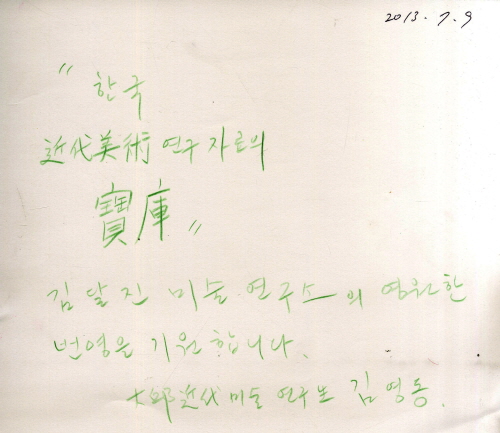 2013. 7. 9
"한국
近代美術 연구자료의
寶庫"
김달진 미술 연구소의 영원한
번영을 기원합니다.
大邱近代미술 연구소 김영동